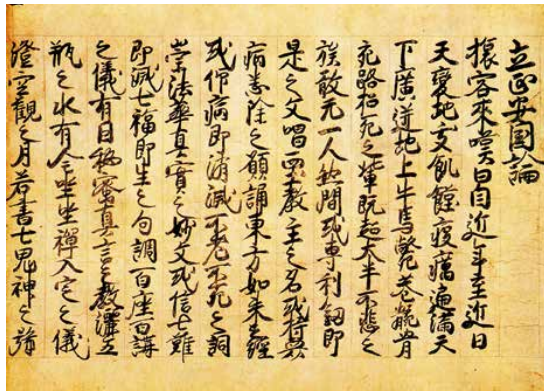 立正安国論
旅客來嘆曰自近年至近日
天變地夭飢饉疫癘遍滿天
下廣迸地上牛馬斃巷骸骨
充路招死之輩既超大半不悲之
族敢无一人然間或專利劔即
是之文唱西土教主之名或持衆
病悉除之願誦東方如來之經
或仰病即消滅不老不死之詞
崇法華真實之妙文或信七難
即滅七福即生之句調百座百講
之儀有因秘密真言之教灑五
瓶之水有全坐禪入定之儀
澄空觀之月若書七鬼神之号